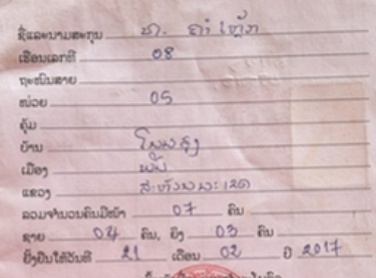 ຊື່ແລະນາມສະກຸນ ທ. ຄຳ ຫຼ້າ
ເຮືອນເລກທີ 08
ຖະໜົນສາຍ
ໜ່ວຍ 05
ຄຸ້ມ
ບ້ານ ໂພນສູງ
ເມືອງ
ແຂວງ ສະຫວັນນະເຂດ
ລວມຈຳນວນຄົນມີໜ້າ 07 ຄົນ
ຊາຍ 04 ຄົນ, ຍິງ 03 ຄົນ
ຍິ່ງຢືນໃຫ້ວັນທີ 21 ເດືອນ 02 ປີ 2017